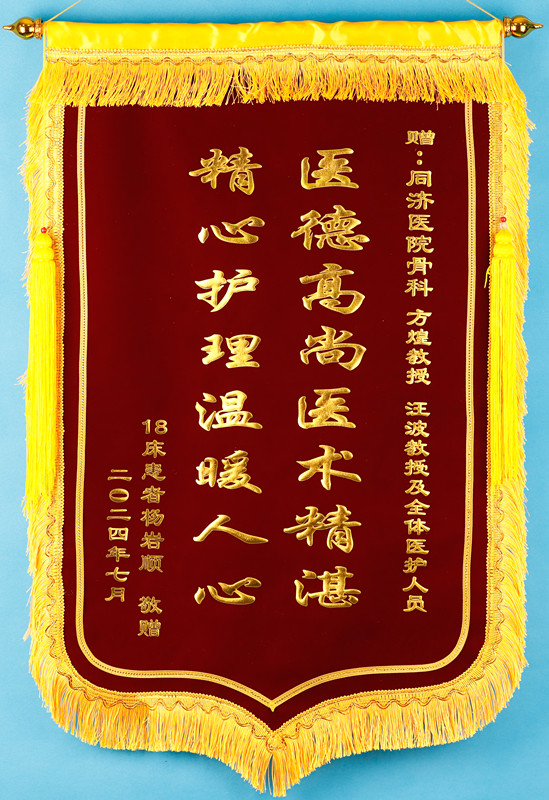 赠：同济医院骨科 方煌教授 汪波教授及全体医护人员
医德高尚医术精湛
精心护理温暖人心
18床患者杨岩顺 敬赠
二〇二四年七月